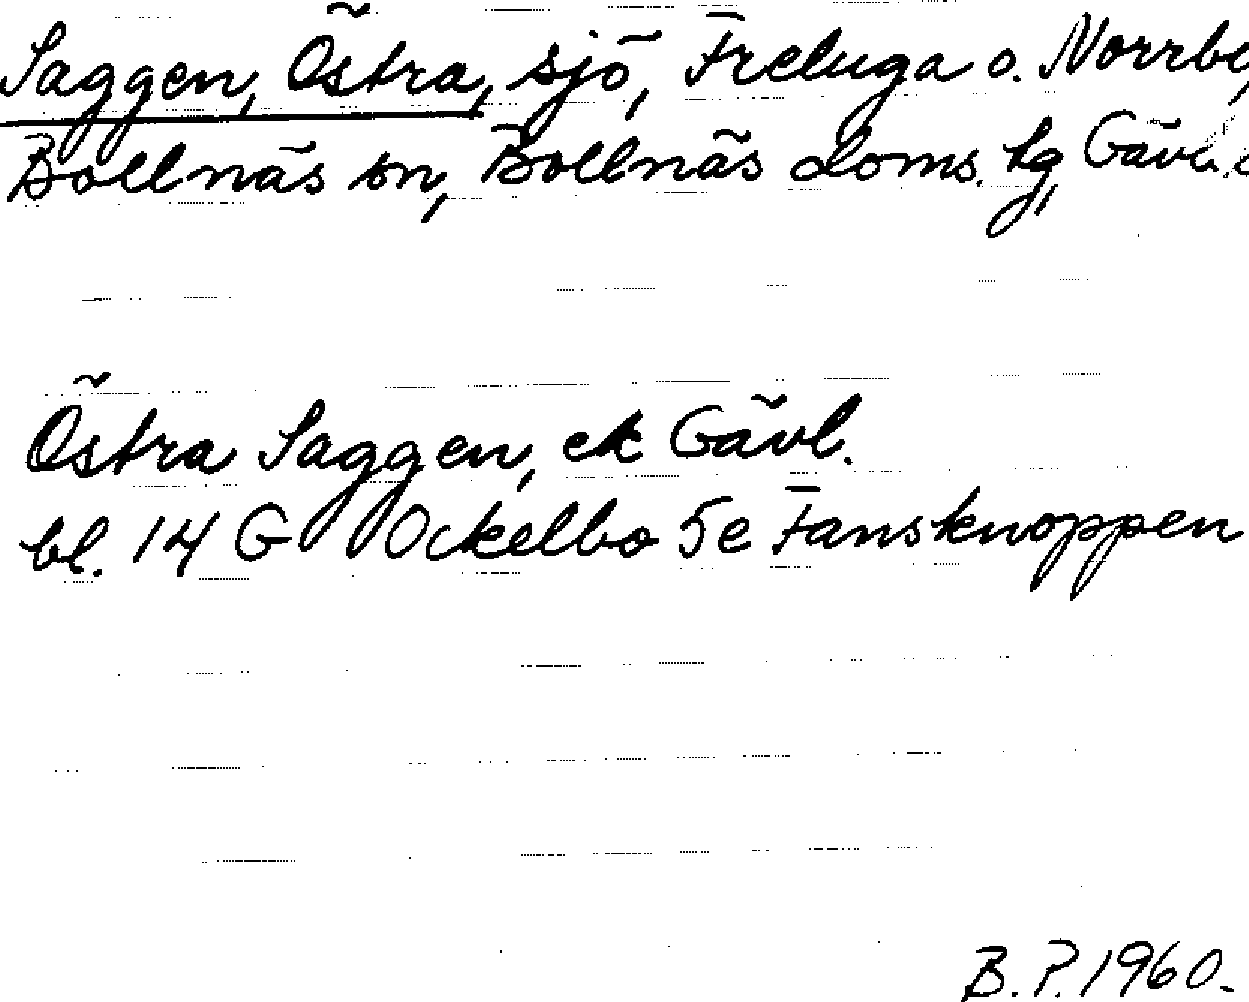 Saggen, Östra, sjö, Freluga o. Norrby,
Bollnäs sn, Bollnäs doms. tg, Gävl.
Östra Saggen, ek Gävl.
bl. 14 G Ockelbo 5e Fansknoppen
B. P. 1960.